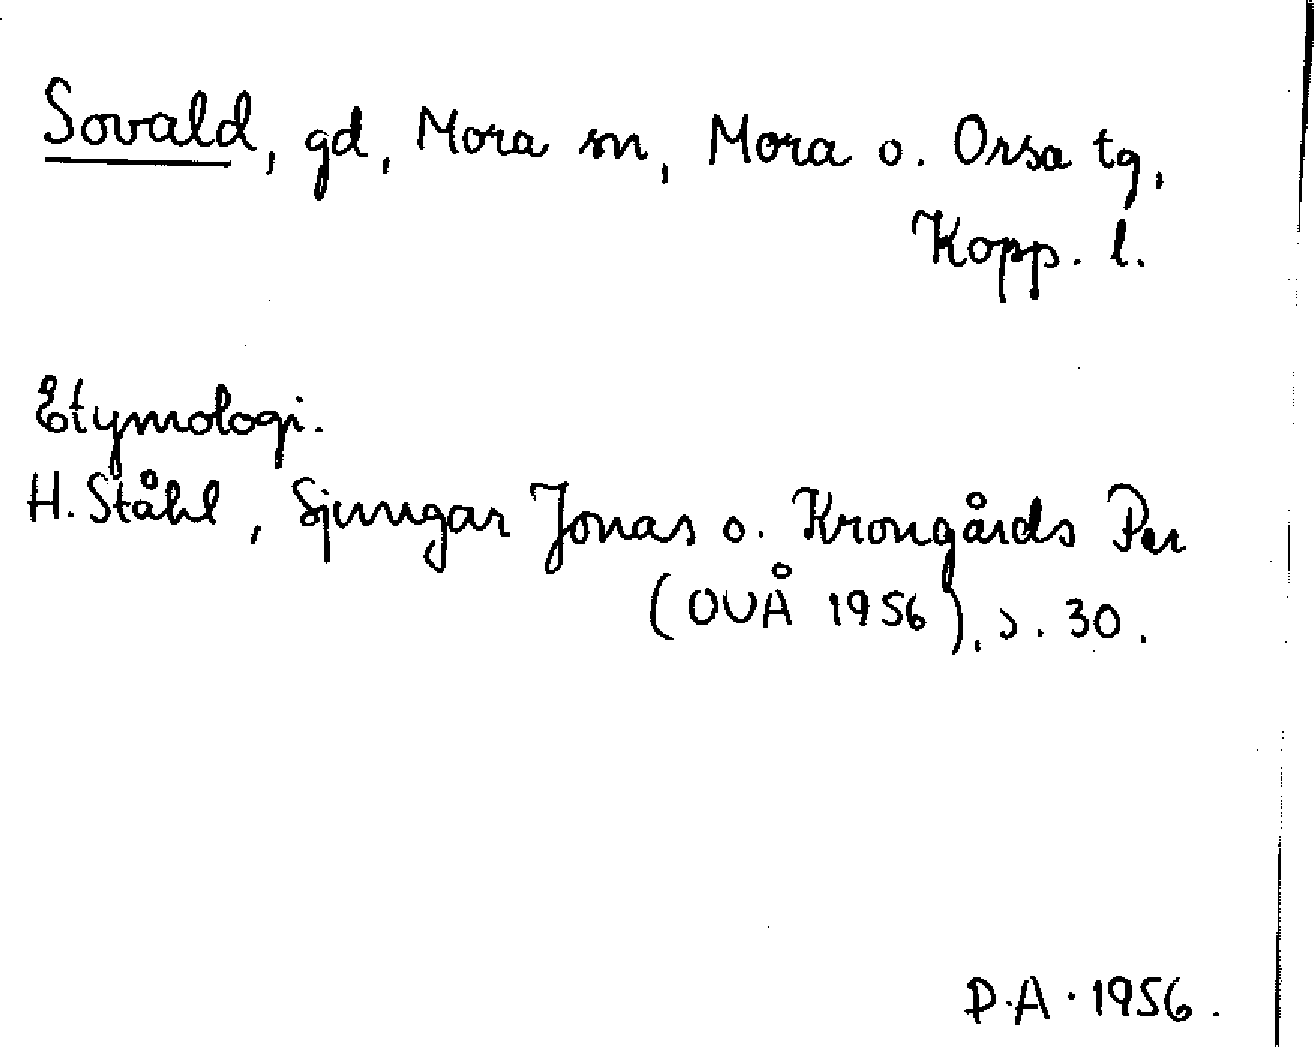 Sovald, gd, Mora sn, Mora o. Orsa tg,
Kopp. l.
Etymologi.
H. Ståhl, Sjungar Jonas o. Krongårds Per
(OUÅ 1956), s. 30.
D.A. 1956.